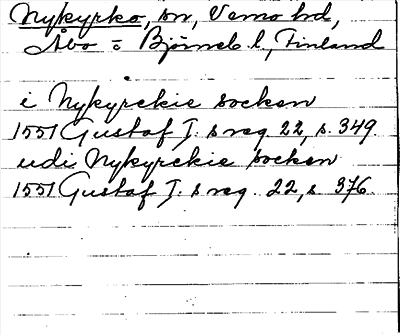 Nykyrko, sn, Vemo hd,
Åbo = Björneb. l., Finland
i Nykyrckie socken
1551 Gustaf I. s reg. 22, s. 349
udi Nykyrckie socken
1551 Gustaf I. s reg. 22, s 376